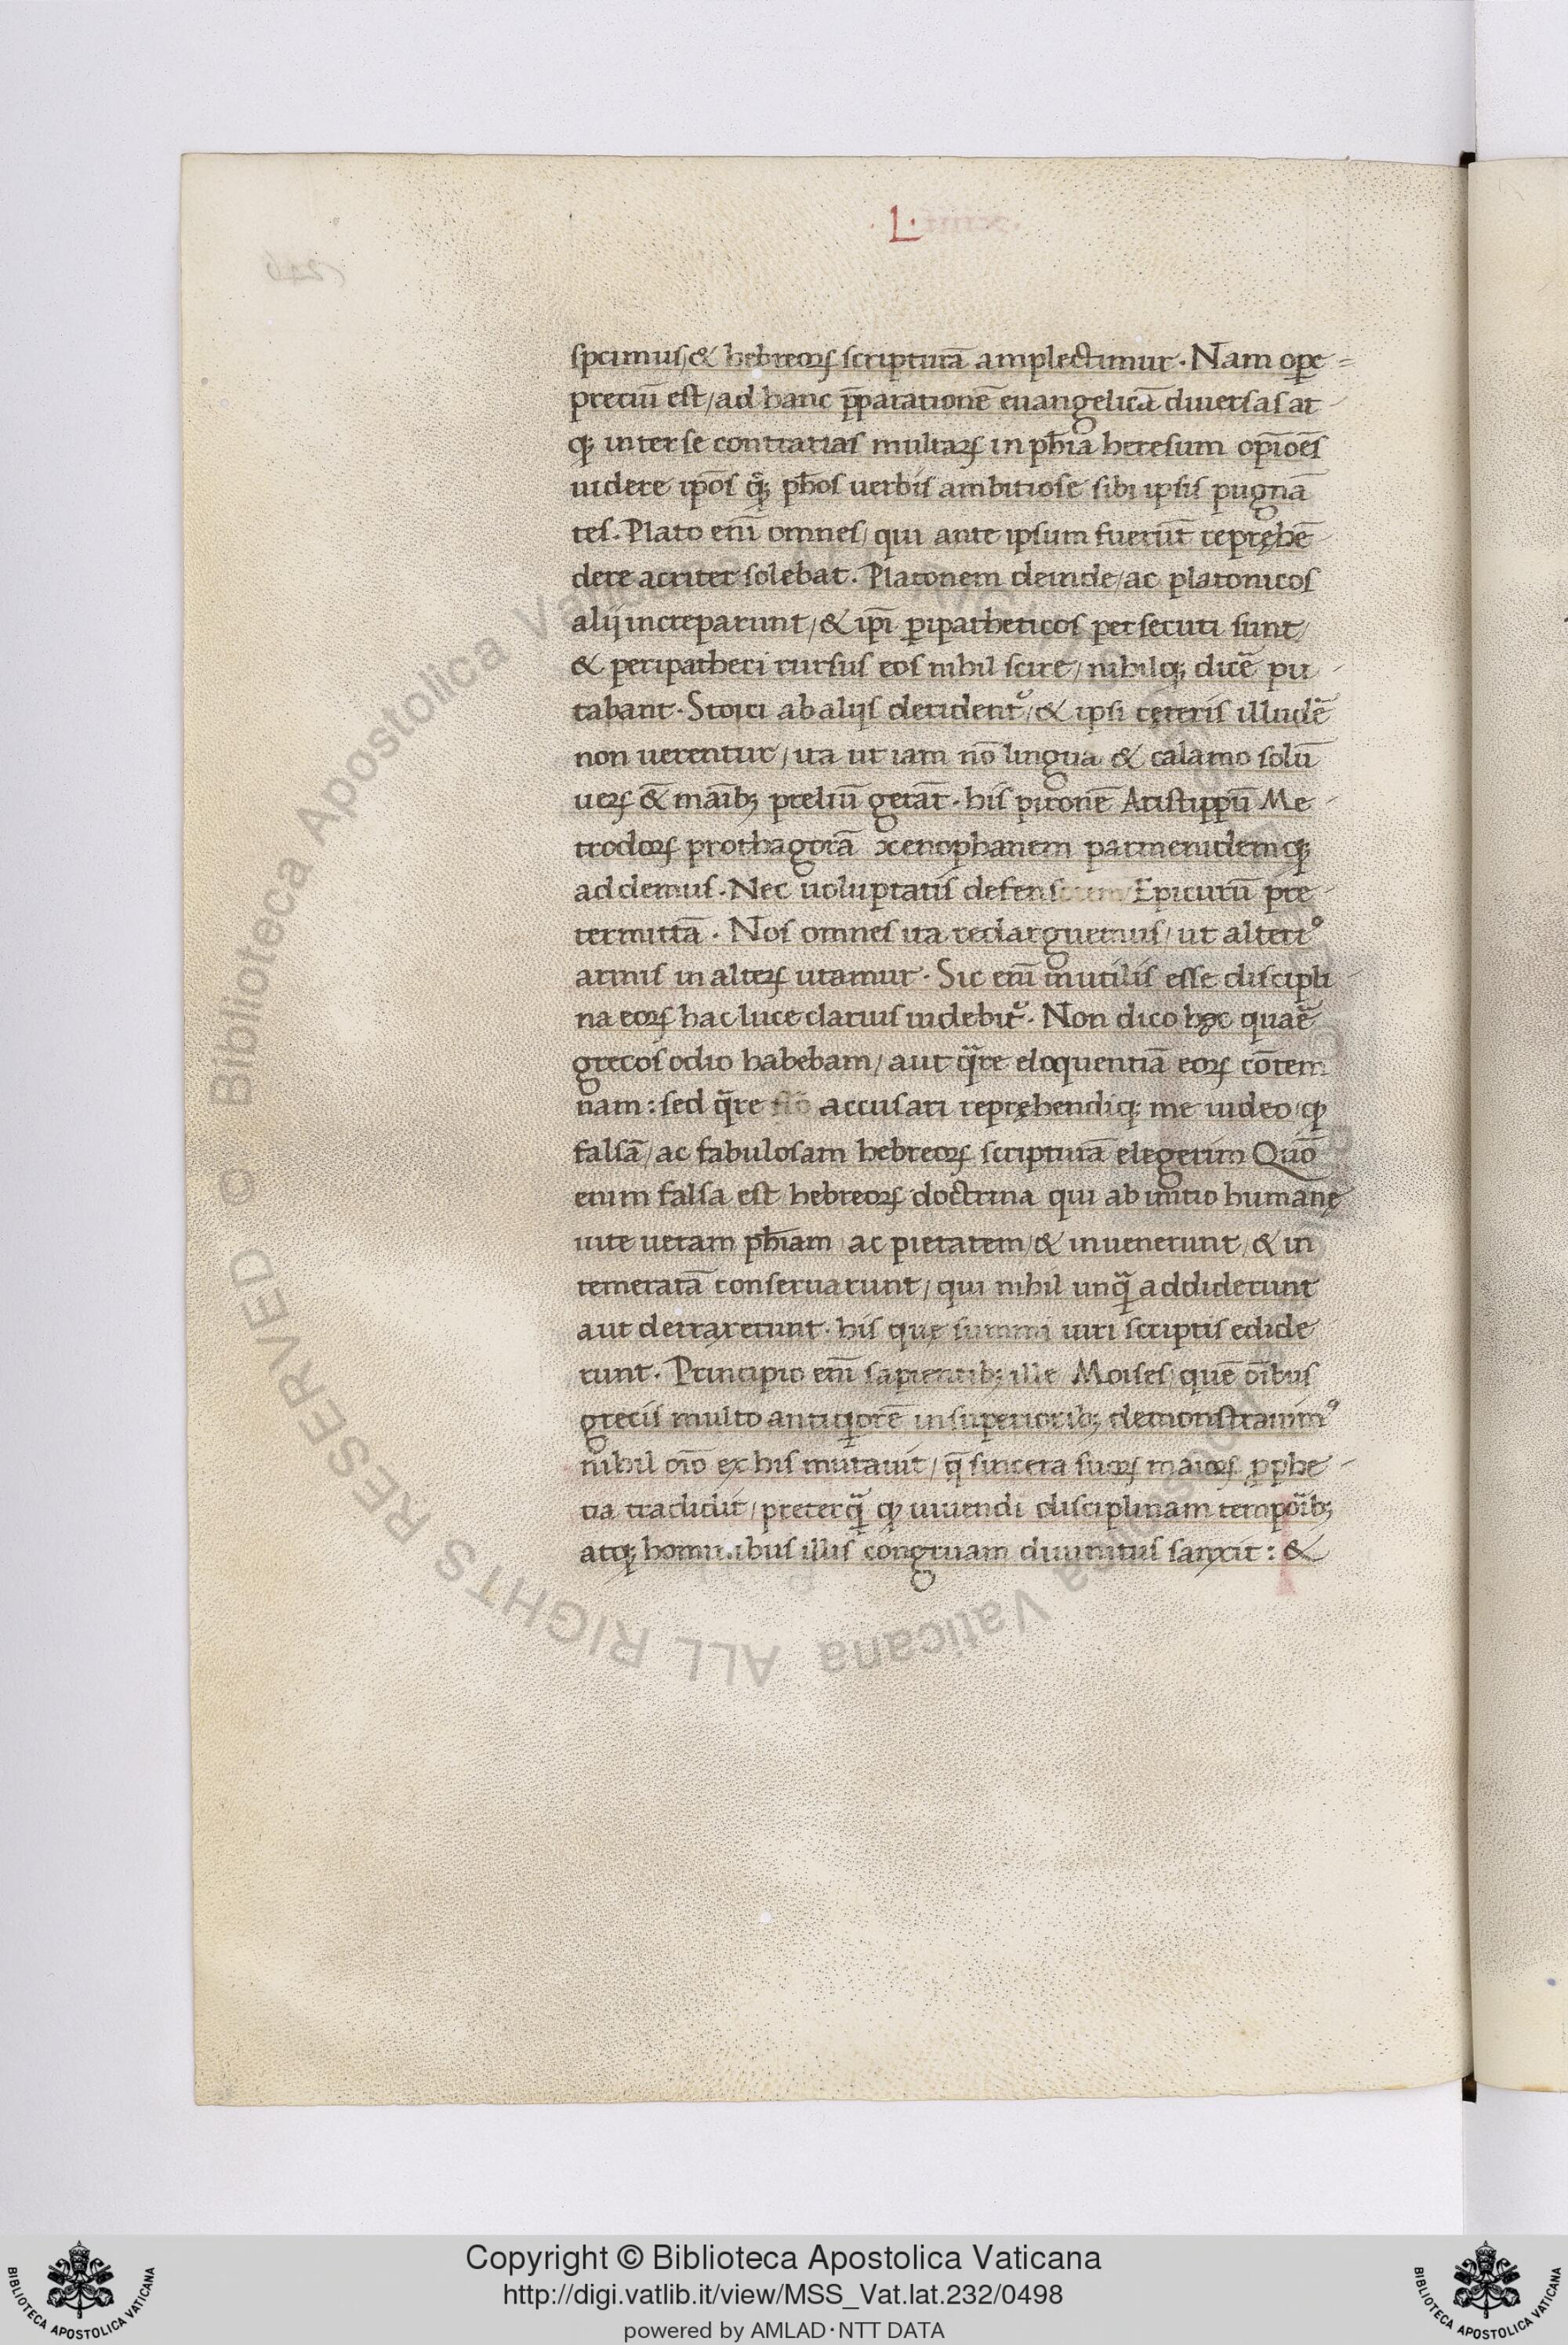 .L.
spcimus/& hebreoꝝ scripturā amplectimur. Nam oꝑe=
preciū est/ad hanc p̄parationē euangelicā diuersas at
qꝫ inter se contrarias multaꝝ in ph̄ia heresum opīōēs
uidere ip̄os qꝫ ph̄os uerbis ambitiose sibi ipsis pugnā
tes. Plato em̄ omnes/qui ante ipsum fuerūt repręhē
dere acriter solebat. Platonem deinde/ac platonicos
alij increparunt/& ip̄i ꝑipatheticos persecuti sunt/
& peripatheci rursus eos nihil scire/nihilqꝫ dicē pu
tabant. Stoici ab alijs derident᷑/& ipsi cęteris illudē
non uerentur/ita ut iam nō lingua & calamo solū
ueꝝ & māibꝫ preliū gerāt. his pironē Aristippū Me
trodoꝝ prothagorā xenophanem parmenidemqꝫ
addemus. Nec uoluptatis defensorem/Epicurū pre
termittā. Nos omnes ita redarguemus/ut alteriꝰ
armis in alteꝝ utamur. Sic em̄ inutilis esse discipli
na eoꝝ hac luce clarius uidebit᷑. Non dico hęc quāē
grecos odio habebam/aut q̄re eloquentiā eoꝝ cōtem
nam: sed q̄re accusari repręhendiqꝫ me uideo/qꝫ
falsā/ac fabulosam hebreoꝝ scripturā elegerim Quō
enim falsa est hebreoꝝ doctrina qui ab initio humanę
uite ueram ph̄iam ac pietatem/& inuenerunt/& in
temeratā conseruarunt/qui nihil unq̄ addiderunt
aut detraxerunt. his quę summi uiri scriptis edide
runt. Principio em̄ sapientibꝫ ille Moises/quē oībus
grecis multo antiq̄orē in superioribꝫ demonstrauimꝰ
nihil oīo ex his mutauit/q̄ sincera suoꝝ maioꝝ ꝓphe
tia tradidit/preterq̄ qꝫ uiuendi disciplinam tempoībꝫ
atqꝫ hominibus illis congruam diuinitus sanxit: &
Copyright © Biblioteca Apostolica Vaticana
http://digi.vatlib.it/view/MSS_Vat.lat.232/0498
powered by AMLAD·NTT DATA
BIBLIOTECA APOSTOLICA VATICANA
BIBLIOTECA APOSTOLICA VATICANA